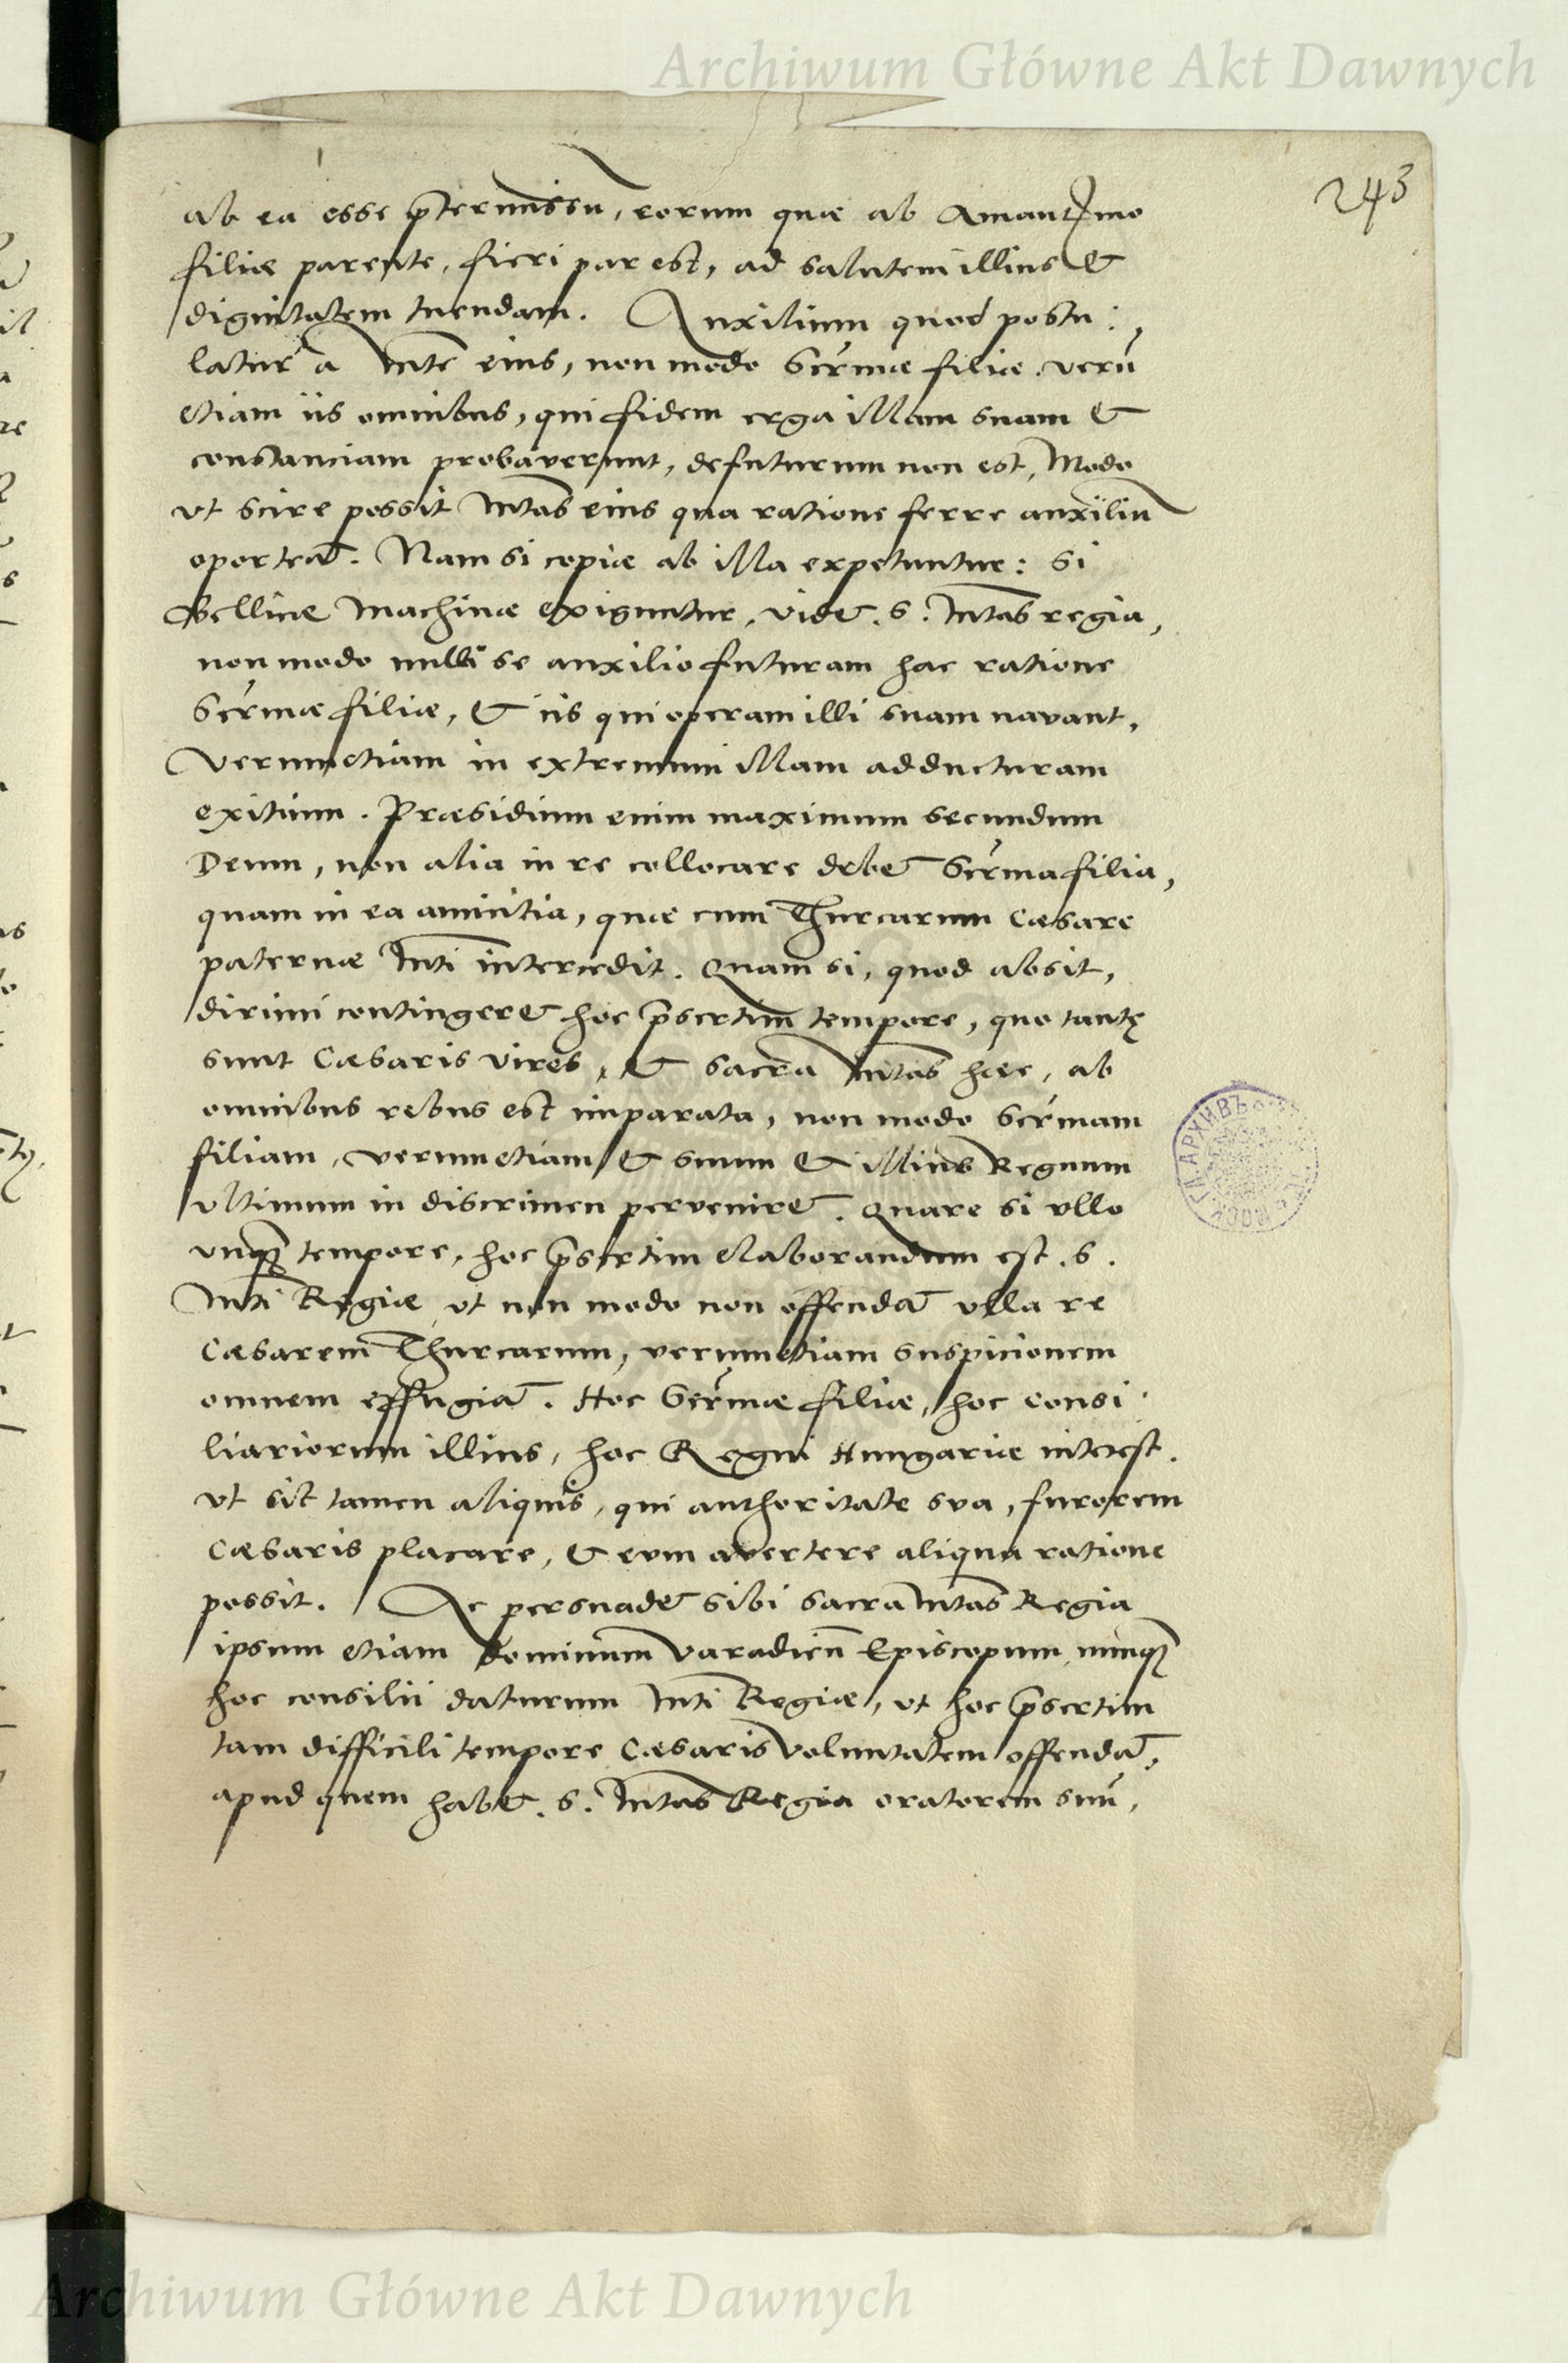 Archiwum Główne Akt Dawnych
243
ab ea esse p̃termissũ, eorum quæ ab Amantmo
filiæ parente, fieri par est, ad salutem illius &
dignitatem tuendam. Auxilium quod postu:
latur a Mte eius, non modo Sermæ filiæ, verũ
etiam iis omnibus, qui fidem erga illam suam &
constanciam probaverunt, defuturum non est, Modo
ut scire possit Mtas eius qua ratione ferre auxiliũ
oporteat. Nam si copiæ ab illa expetuntur: si
Bellicæ machinæ exiguntur, videt. S. Mtas regia,
non modo nulli se auxilio futuram hac ratione
Sermæ filiæ, & iis qui operam illi suam navant,
verum etiam in extremum illam adducturam
exitium. Præsidium enim maximum secundum
Deum, non alia in re collocare debet Serma filia,
quam in ea amicitia, quæ cum Thurcarum Cæsare
paternæ Mti intercedit. Quam si, quod absit,
dirimi contingeret hoc p̃sertim tempore, quo tantę
sunt Cæsaris vires, & sacra Mtas hæc, ab
omnibus rebus est imparata, non modo Sermam
filiam, verum etiam & suum & illius Regnum
ultimum in discrimen perveniret. Quare si ullo
unq̃ tempore, hoc p̃sertim elaborandum est. S.
Mti Regiæ ut non modo non offendat ulla re
Cæsarem Thurcarum, verum etiam suspicionem
omnem effugiat. Hoc Sermæ filiæ, hoc consi
liariorum illius, hoc Regni Hungariæ interest.
ut sit tamen aliquis, qui authoritate sua, furorem
Cæsaris placare, & eum avertere aliqua ratione
possit. Ac persuadet sibi sacra Mtas Regia
ipsum etiam Dominum Varadieñ Episcopum, nunq̃
hoc consilii daturum Mti Regiæ, ut hoc p̃sertim
tam difficili tempore Cæsaris voluntatem offendat,
apud quem habet. S. Mtas Regia oratorem suũ,
Archiwum Główne Akt Dawnych